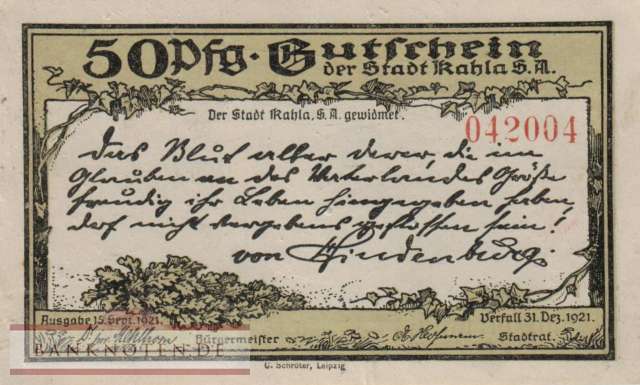 50 Pfg. Gutschein
der Stadt Kahla S.A.
Der Stadt Kahla, S.A. gewidmet.
042004
Das Blut aller derer, die im
Glauben an des Vaterlandes Größe
freudig ihr Leben hingegeben haben,
darf nicht vergebens geflossen sein!
von Hindenburg.
Ausgabe 15. Sept. 1921.
Verfall 31. Dez. 1921.
Bürgermeister
Stadtrat.
BANKNOTEN.DE
C. Schröter, Leipzig